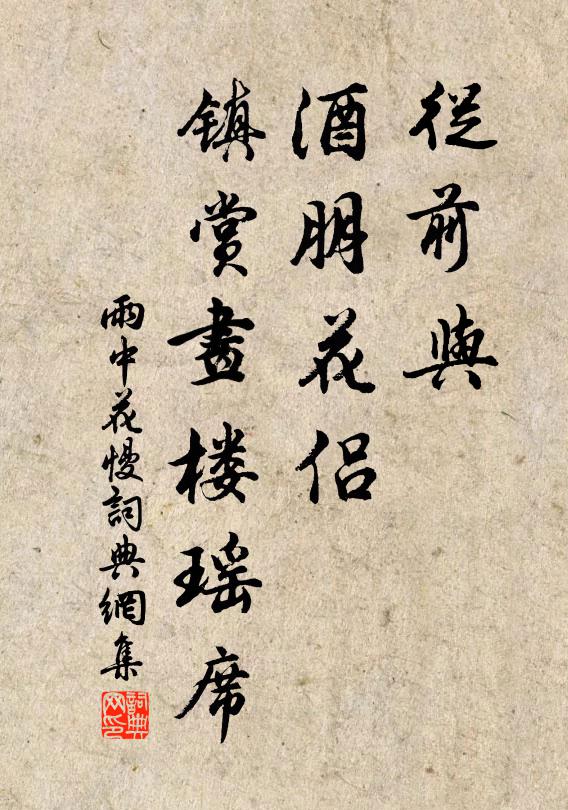 從前與
酒朋花侣
镇賞畫楼瑶席
雨中花慢詞典網集
詞典网印